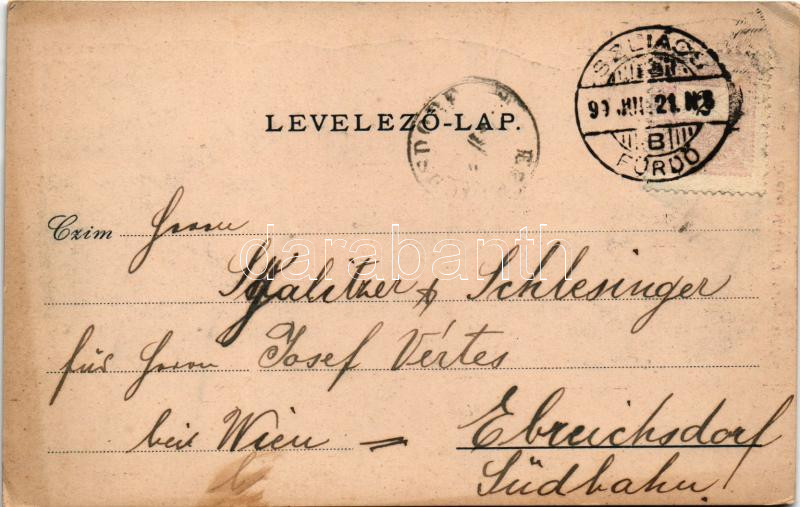 SZLIÁCS
99 JUL 21. N3
B
FÜRDŐ
LEVELEZŐ-LAP.
Czim Herrn
Galitzer & Schlesinger
für Herrn Josef Vértes
bei Wien = Ebreichsdorf
Südbahn
darabanth